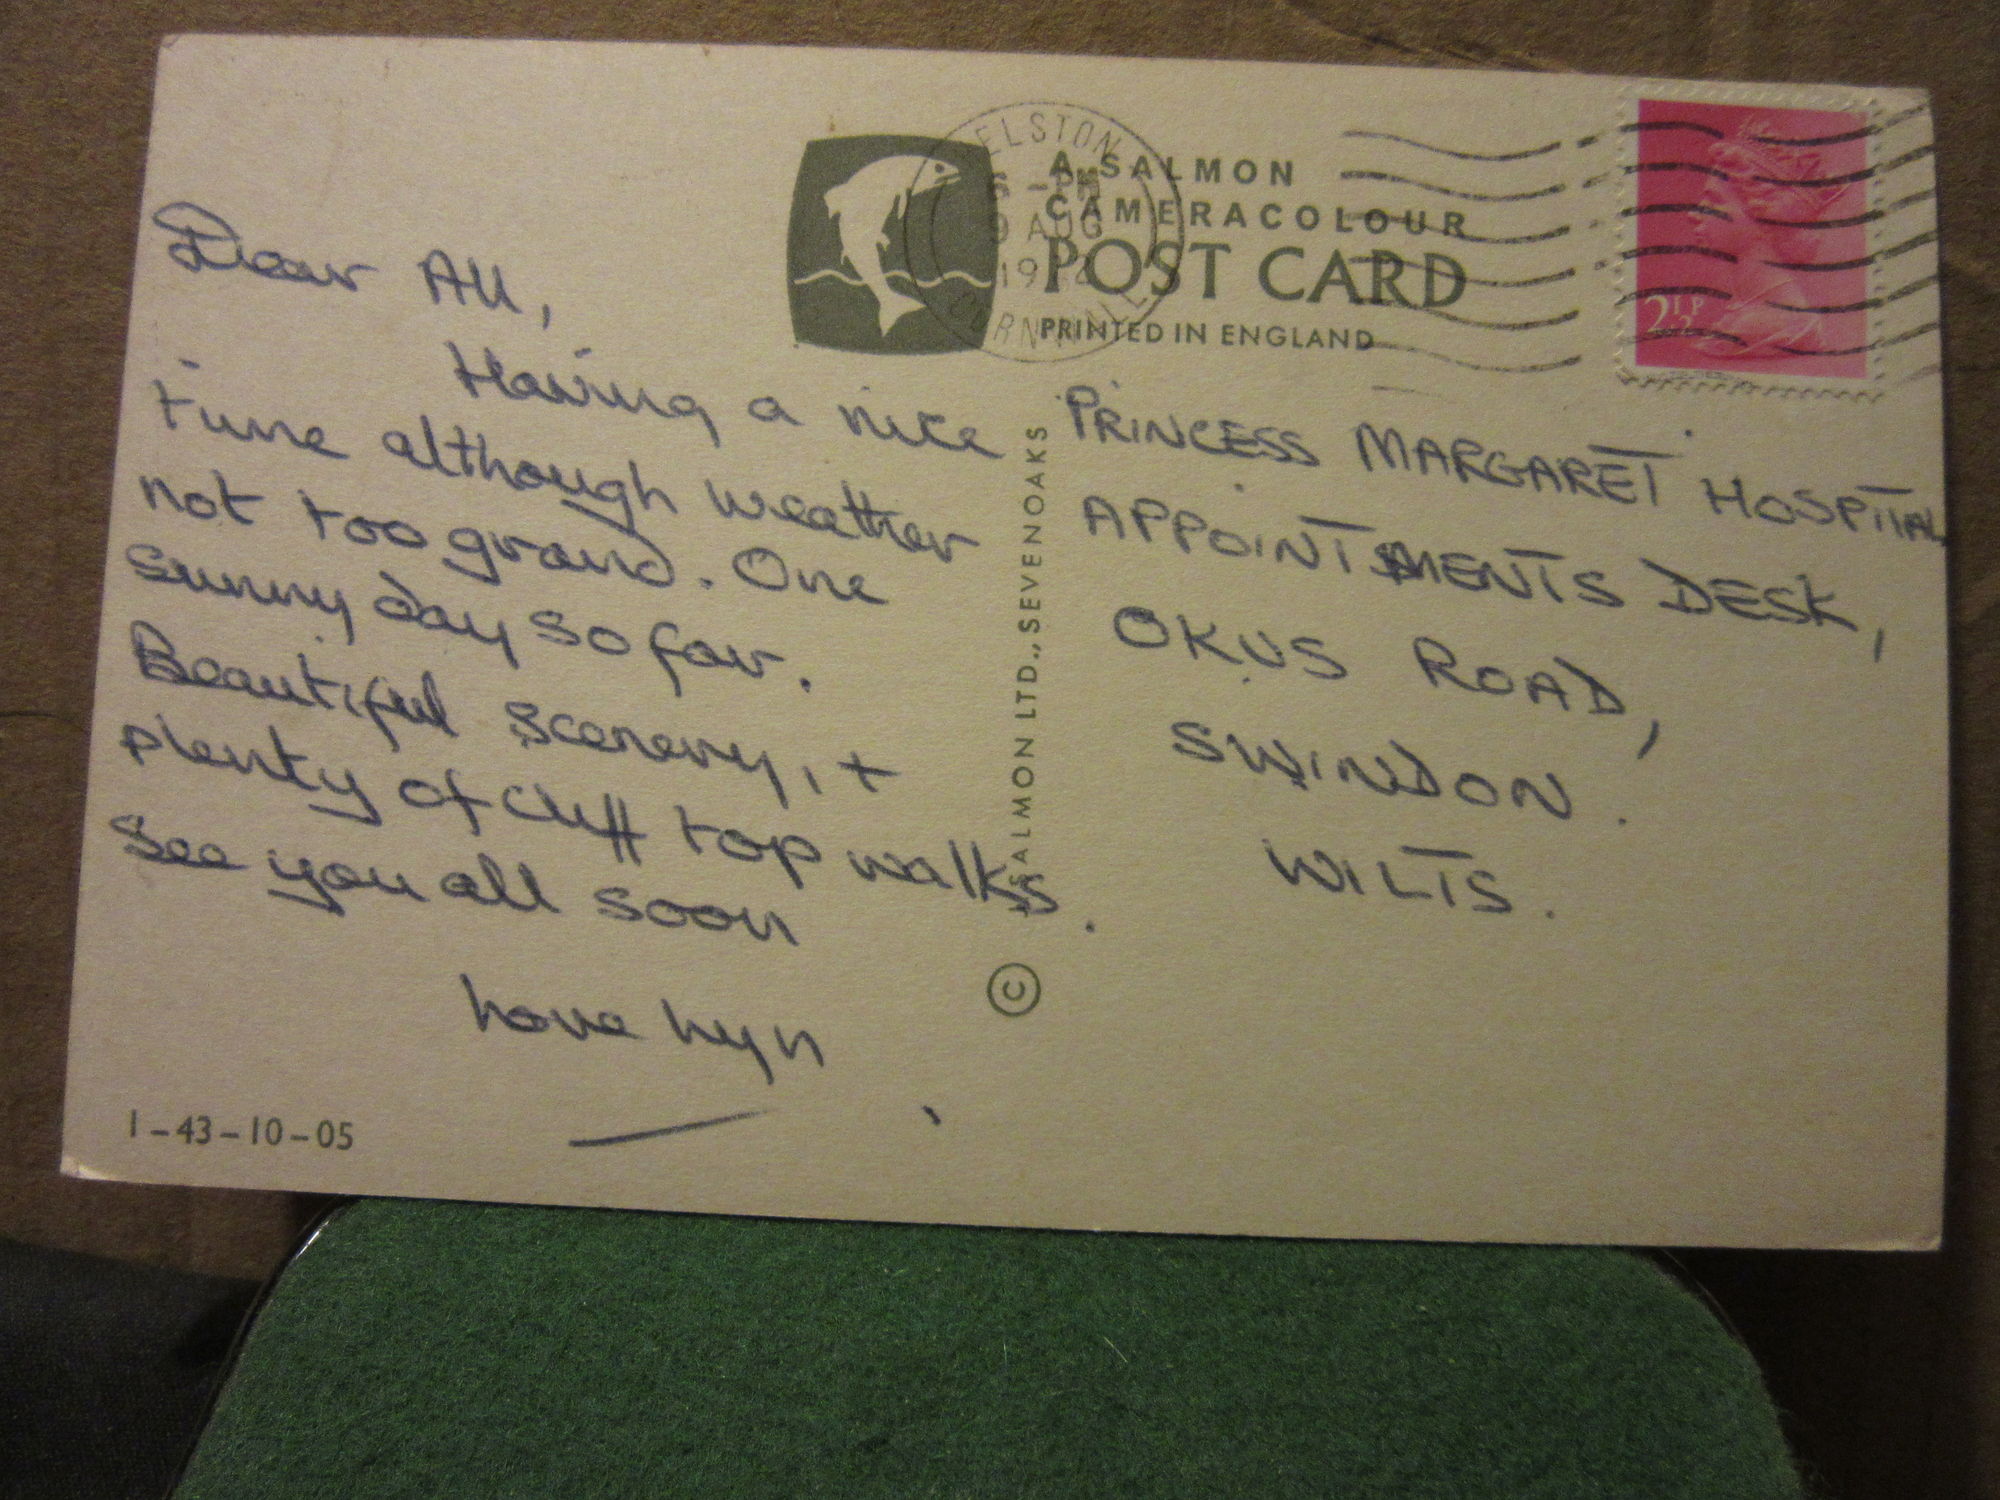 ELSTON
-PM
9 AUG
CORNWALL
A SALMON
CAMERACOLOUR
POST CARD
PRINTED IN ENGLAND
2½P
Dear All,
Having a nice
time although weather
not too grand. One
sunny day so far.
Beautiful scenery, +
plenty of cliff top walks.
See you all soon
Love Lyn
1-43-10-05
© J SALMON LTD., SEVENOAKS
PRINCESS MARGARET HOSPITAL
APPOINTMENTS DESK,
OKUS ROAD,
SWINDON.
WILTS.